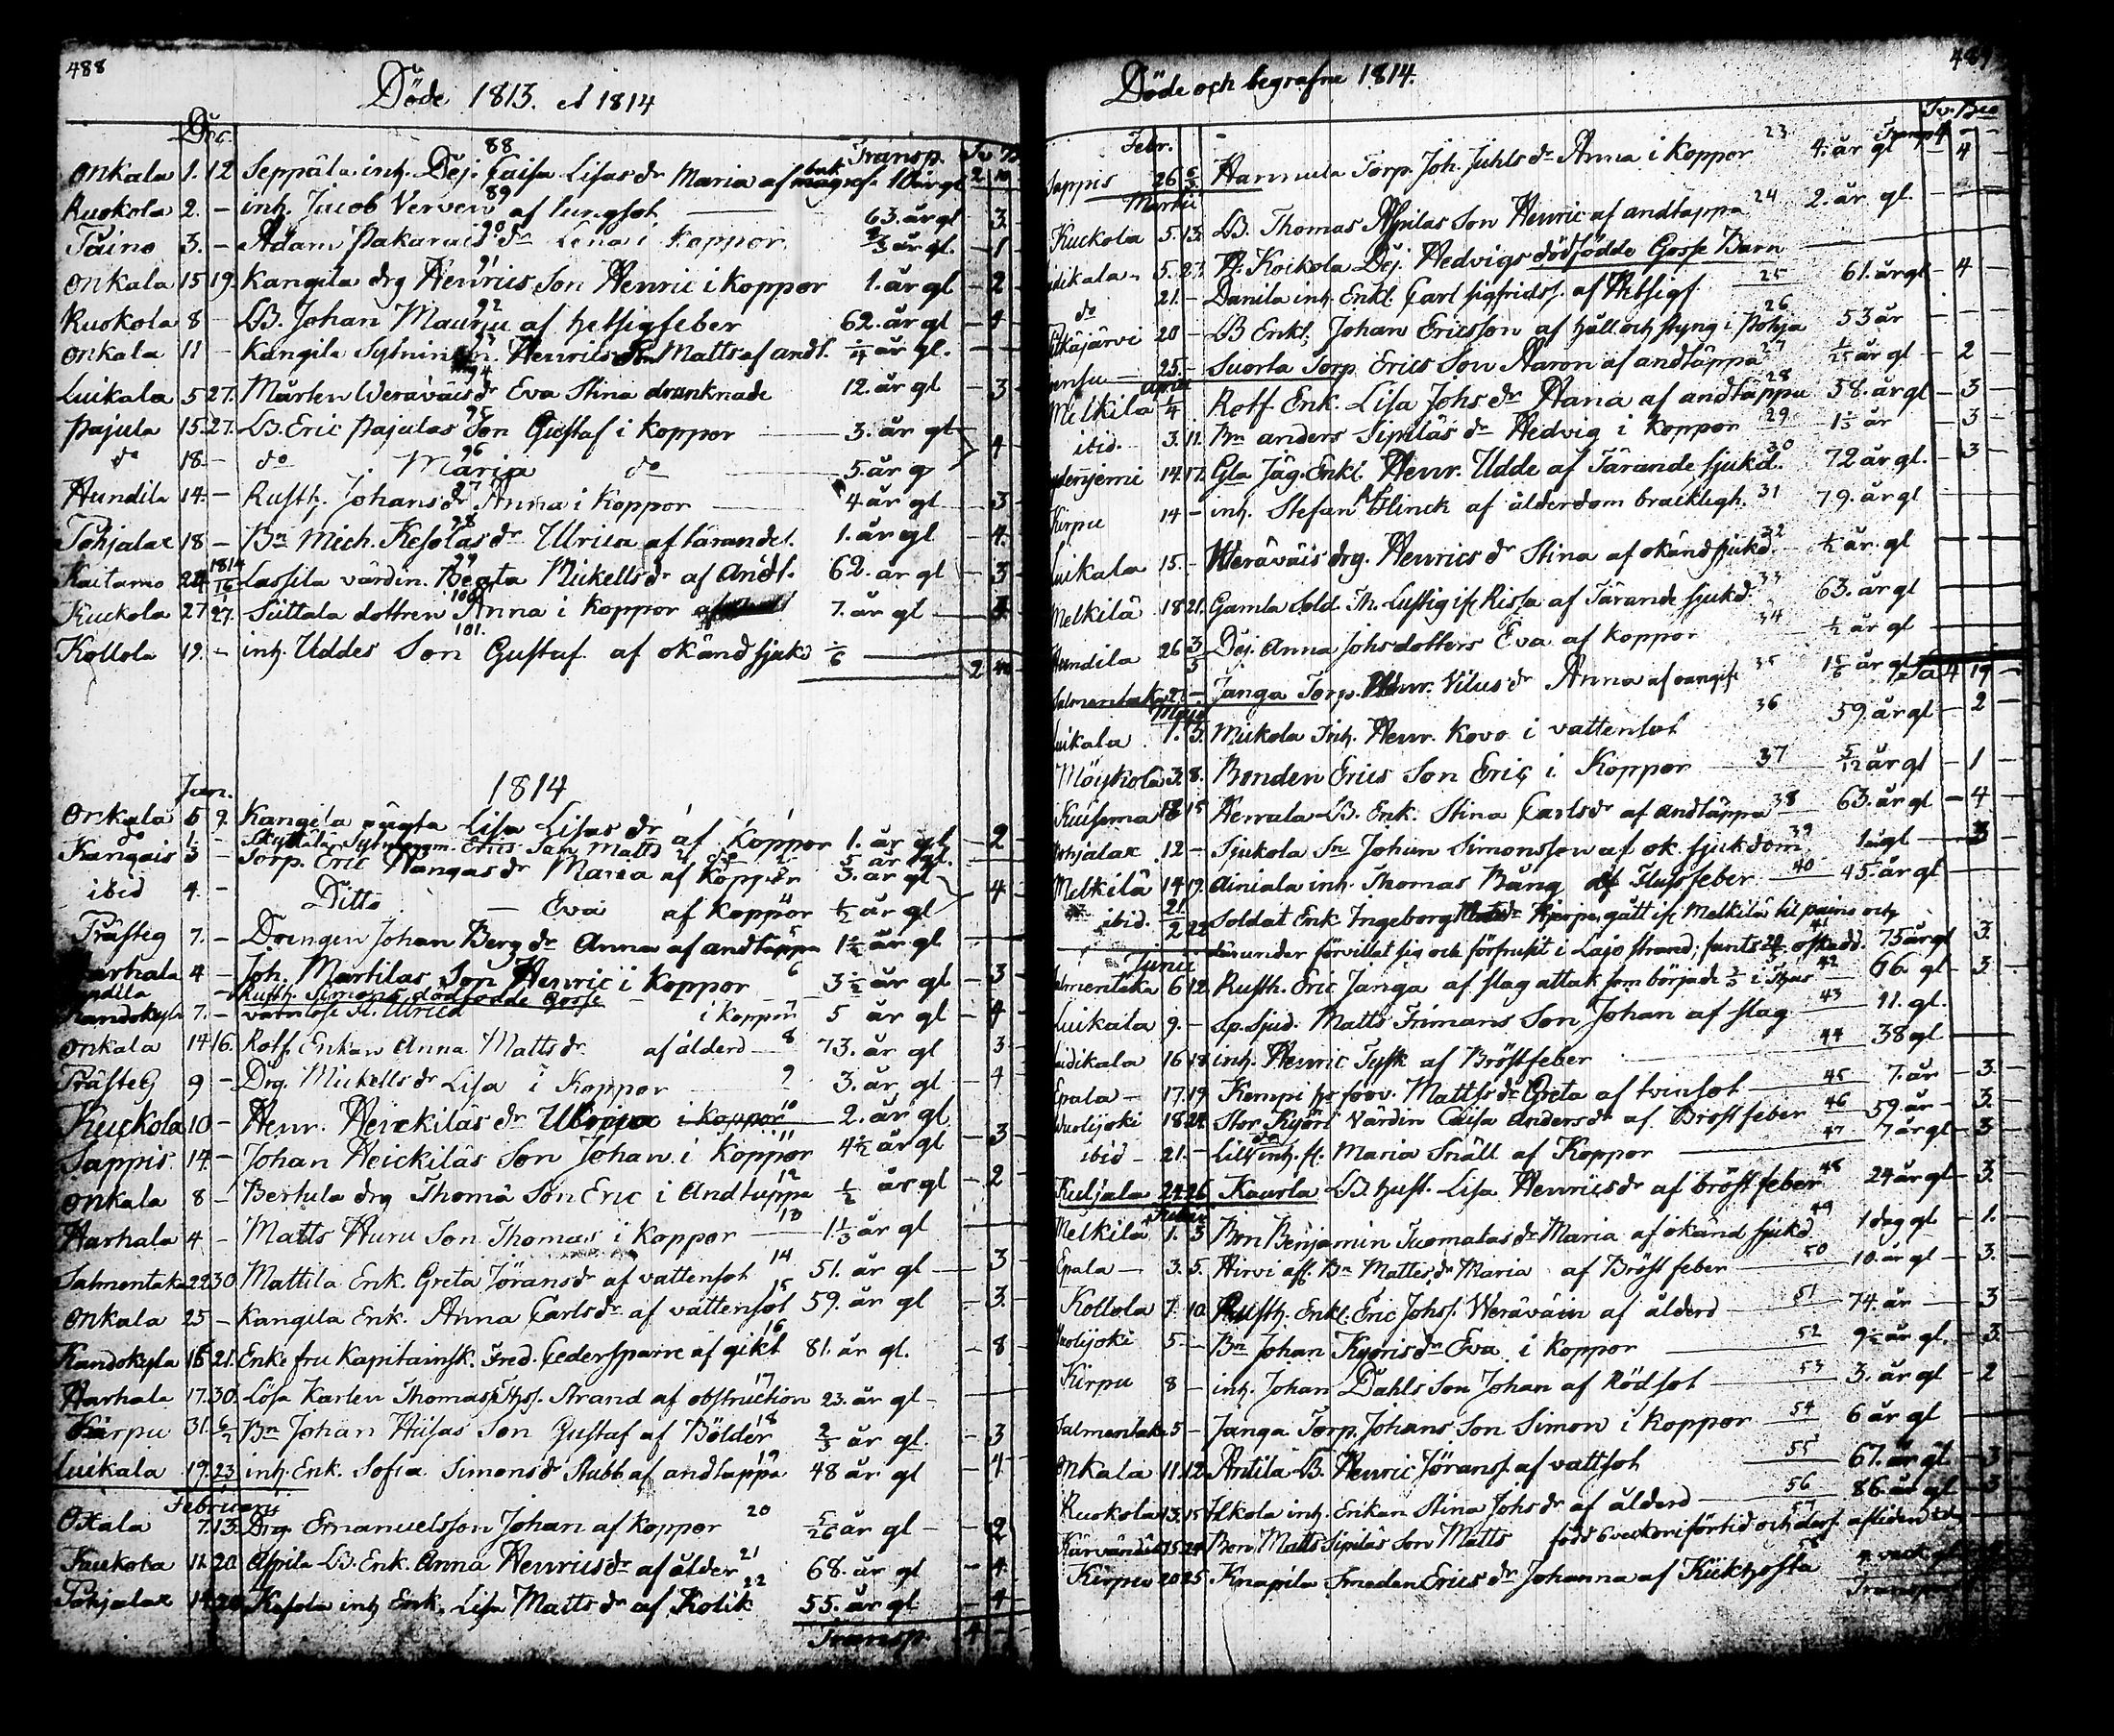 488
Döde 1813. et 1814
Dec.
88
Transp.
Onkala 1. 12 Seppälä inh. Dej. Caisa Lisas dr Maria af 1 år gl 2
89
Ruokola 2. – inh. Jacob Verven af lungsot 63. år gl 3.
Taino 3. – Adam Pakarais dr Lena i koppor 2/3 år gl. – 1
91
Onkala 15 19. Kangila drg Henrics Son Henric i koppor 1. år gl – 2
92
Ruokola 8 – LB. Johan Maurju af hetsigfeber 62. år gl – 4
Onkala 11 – Kangila Sytningm. Henrics Son Matts af andt. 1/4 år gl. –
94
Luikala 5 27. Mårten Weräväis dr Eva Stina drunknade 12. år gl – 3
95
Pajula 15. 27. LB. Eric Pajulas Son Gustaf i koppor 3. år gl
96
do 18. – do Maria do 5. år g 4
97
Hundila 14. – Rusth. Johans dr Anna i koppor 4 år gl 3
98
Pohjalax 18 – Bn Mich. Kesolas dr Ulrica af tärandes. 1. år gl 4.
1814 99
Kaitamo 24 16/1 Lassila värdin. Beata Mickells dr af Andt. 62. år gl – 3
100
Kuckola 27 27. Siittala dottren Anna i koppor 7. år gl 3
101.
Kollola 19. – inh. Uddes Son Gustaf af okänd sjukd 1/6
2 40
1814
Jan.
Onkala 6 9. Kangila pigta Lisa Lisas dr af koppor 1. år gl. 2
do Sytningm. Erics Son Matts år gl.
Kangais 3 – Torp. Eric Hangas dr Maria af koppor 3. år gl
ibid 4. – Ditto – Eva af koppor 1/2 år gl 4
Prästeg 7. – Drengen Johan Berg dr Anna af andtäppa 1 1/2 år gl
6
Harhala 4 – Joh. Martilas Son Henric i koppor 3 1/2 år gl – 3
Hundila – Rusth. Simons dödfödde Gosse
7
Kandokyla 7. – värnlöse fl. Ulrica i koppor 5 år gl – 4
Onkala 14 16. Rotf. Enkan Anna Matts dr af ålderd 8 73. år gl 3
PrästeG 9 – Drg. Mickells dr Lisa i Koppor 9 3. år gl – 4
Kuckola 10 – Henr. Heickiläs dr Ulrica i koppor 10 2. år gl
11
Sappis. 14. – Johan Heickiläs Son Johan i Koppor 4 1/2 år gl – 3
12
Onkala 8 – Bertula drg Thomä Son Eric i Andtäppa 1/2 år gl – 2
13
Harhala 4 – Matts Huru Son Thomas i koppor 1 1/3 år gl
14
Salmentaka 22 30 Mattila Enk. Greta Jörans dr af vattensot 51. år gl 3
15
Onkala 25 – Kangila Enk. Anna Carls dr af vattensot 59. år gl – 3.
16
Kandokyla 16 21. Enke fru Kapitainsk. Fred. Cedersparre af gikt 81. år gl. – 8
17
Harhala 17. 30. Lösa Karlen Thomas Strand af obstruction 23. år gl –
18
Kirpu 31. 6/2 Bn Johan Hiisas Son Gustaf af Bölder 2/3 år gl. – 3
19
Luikala 19. 23. inh. Enk. Sofia Simons dr Stubb af andtäppa 48 år gl – 4
Februarij
20
7. 13. Drg. Emanuelsson Johan af koppor 5/26 år gl – 2
21
Kuckola 11. 20. Appila LB. Enk. Anna Henrics dr af ålder 68. år gl – 4
22
Pohjalax 14. 20. Kesola inh Enk. Lisa Matts dr af Kolik 55. år gl – 4
Transp. 4
Döde och begrafne 1814.
Febr.
Transp 4 – –
23
Sappis 26 6/3 Hannula Torp. Joh. Juhls dr Anna i koppor 4. år gl – 4
Martii
24
Kuckola 5. 13. LB. Thomas Appilas Son Henric af andtäppa 2. år gl.
5. 27. Koikola Dej. Hedvigs dödfödde Gosse Barn
25
do 21. – Danila inh. Enkl. Carl Sigfridss. af Hetsigf 61. år gl – 4
26
Pitkäjärvi 20 – LB Enkl. Johan Ericsson af håll och styng i Pohja 53 år
27
25. – Suorta Torp. Erics Son Aaron af andtäppa år gl 2
April
28
Melkilä 1/4 Rotf. Enk. Lisa Johs. dr Hana af andtäppa 58. år gl – 3
29
ibid. 3. 11. Bn Anders Sipiläs dr Hedvig i koppor 1 1/2 år – 3
30
14. 17. Gla Jäg. Enkl. Henr. Udde af Tärande sjukd. 72 år gl. – 3
31
Kirpu 14 – inh. Stefan Flinck af ålderdom bräckligh. 79. år gl
32
Luikala 15. – Weräväis drg. Henrics dr Stina af okänd sjukd. 1/2 år. gl
33
Melkilä 18 21. Gamla Sold. Th. Lustig ifr. Rissa af Tärande sjukd 63. år gl
34
Hundila 26 3/5 Dej. Anna Johs dotters Eva af koppor 1/2 år gl
35
Salmentaka 27. – Janga Torp. Henr. Vilus dr Anna af 1 5/6 år gl 4 19 –
Maji
36
Luikala 1. 3. Mickola Inh. Henr. Kovo i vattensot 59. år gl – 2
37
Möyskola 3. 8. Bonden Erics Son Eric i Koppor 5/12 år gl – 1
38
Kuisema 8 15 Herrala LB. Enk. Stina Carls dr af andtäppa 63. år gl – 4
39
Pohjalax 12 – Sjukola Sn Johan Simonsson af ok. sjukdom gl 3
40
Melkilä 14 19. Ainiala inh. Thomas Bång af Flussfeber 45. år gl
ibid. 21/2 22 Soldat Enk. Ingeborg gått ifr. Melkilä til paino och
41
därunder förvillat sig och förfrusit i Lajo strand; fants oskadd. 75 år gl 3.
Junii
42
Salmentaka 6 12. Rusth. Eric Janga af slag attak som började 66. gl – 3
43
Luikala 9. – Sp. Sjud. Matts Frimans Son Johan af slag 11. gl.
44
16 18. inh. Henric Tysk af Bröstfeber 38 gl
45
Epala – 17. 19 Kempi Mattss dr Greta af tvinsot 7. år – 3.
46
18 24 Stor Kyörö Värdin Caisa Anders dr af Bröst feber 59. år – 3.
47
ibid – 21. – Lill inh. fl. Maria Snäll af Koppor 7 år gl – 3
48
Kuljala 24 26 Kaurla LB. hust. Lisa Henrics dr af bröst feber 24 år gl – 3
49
Melkilä 1. 3 Bon Benjamin Tuomalas dr Maria af okänd sjukd. 1 dag gl – 1.
50
Epala – 3. 5. Hirvi afl. Bn Mattes dr Maria af Bröst feber 10. år gl – 3.
51
Kollola 7. 10. Rusth. Enkl. Eric Johss. Weräväin af ålderd 74. år 3
52
5 – Bn Johan Kyoris dr Eva i koppor 9 1/2 år gl. – 3.
53
Kirpu 8 – inh. Johan Dahls Son Johan af Rödsot 3. år gl – 2
54
Salmentaka 5 – Janga Torp. Johans Son Simon i koppor 6 år gl
55
Onkala 11. 12. Antila LB. Henric Jöranss. af vattsot 67. år gl – 3
56
Ruokola 13. 15 Ilkola inh. Enkan Stina Johs dr af ålderd 86. år gl – 3
57
Bon Matts Sipiläs Son Matts född 6 veckor i förtid och derf. afliden
58
Kirpu 20 25 Knapila Smeden Erics dr Johanna af Kikhosta 4. veck. gl
Transp.